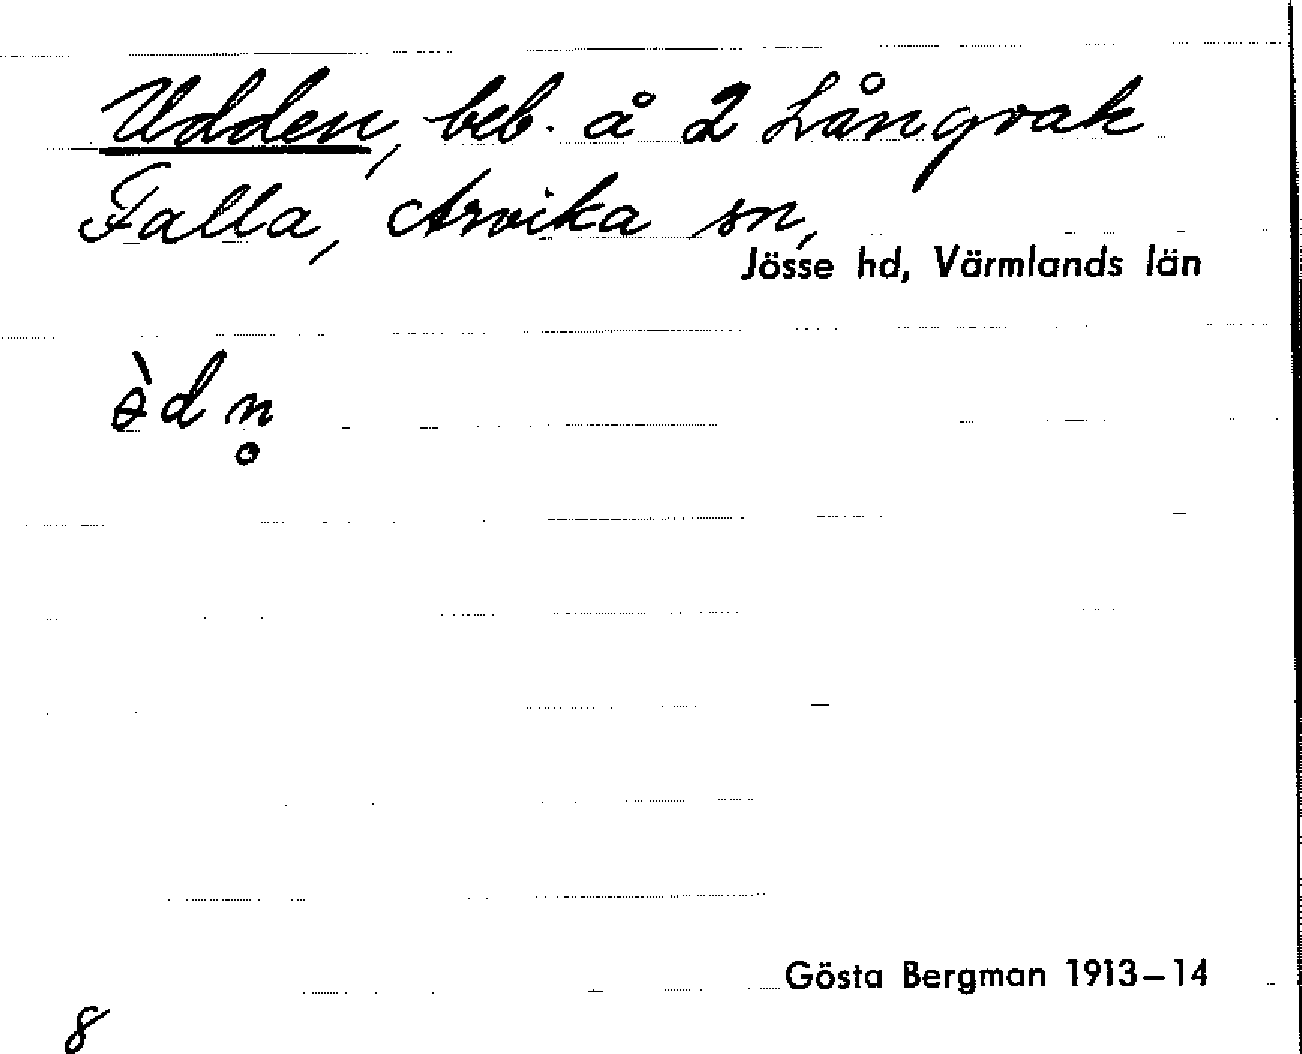 Udden, beb. å 2 Långvak
Falla, Arvika sn,
Jösse hd, Värmlands län
ɵ̀dn̥
Gösta Bergman 1913–14
8